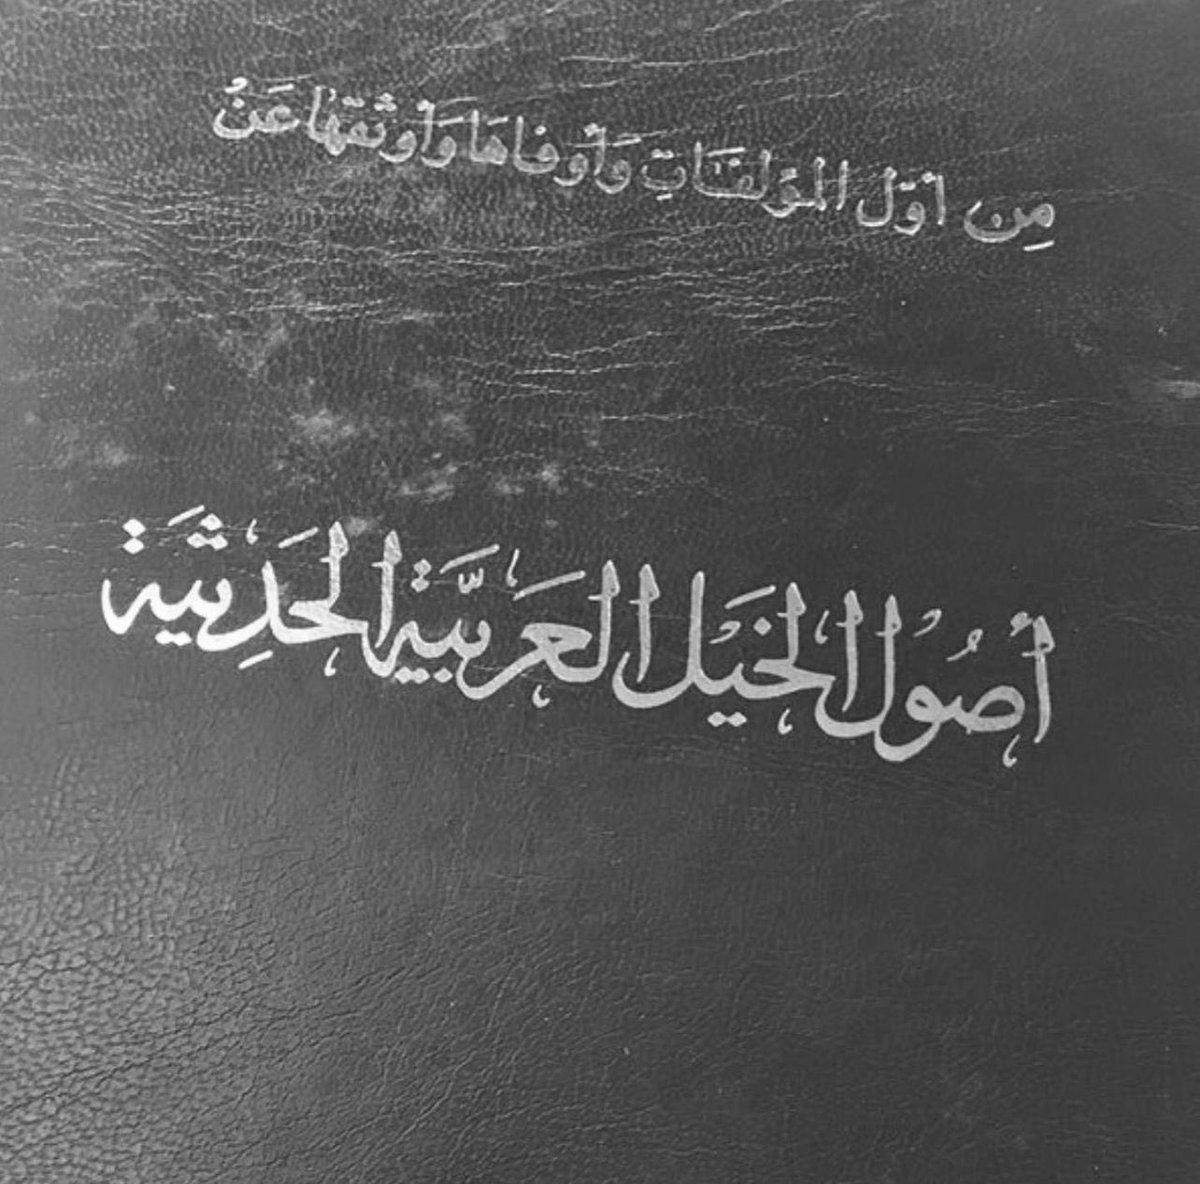 مِن أوّل المؤلفَاتِ وَأوفاهَا وَأوثقهَا عَنُ
أصُول الخيَل العَربيَّة الحَدِيثيَة